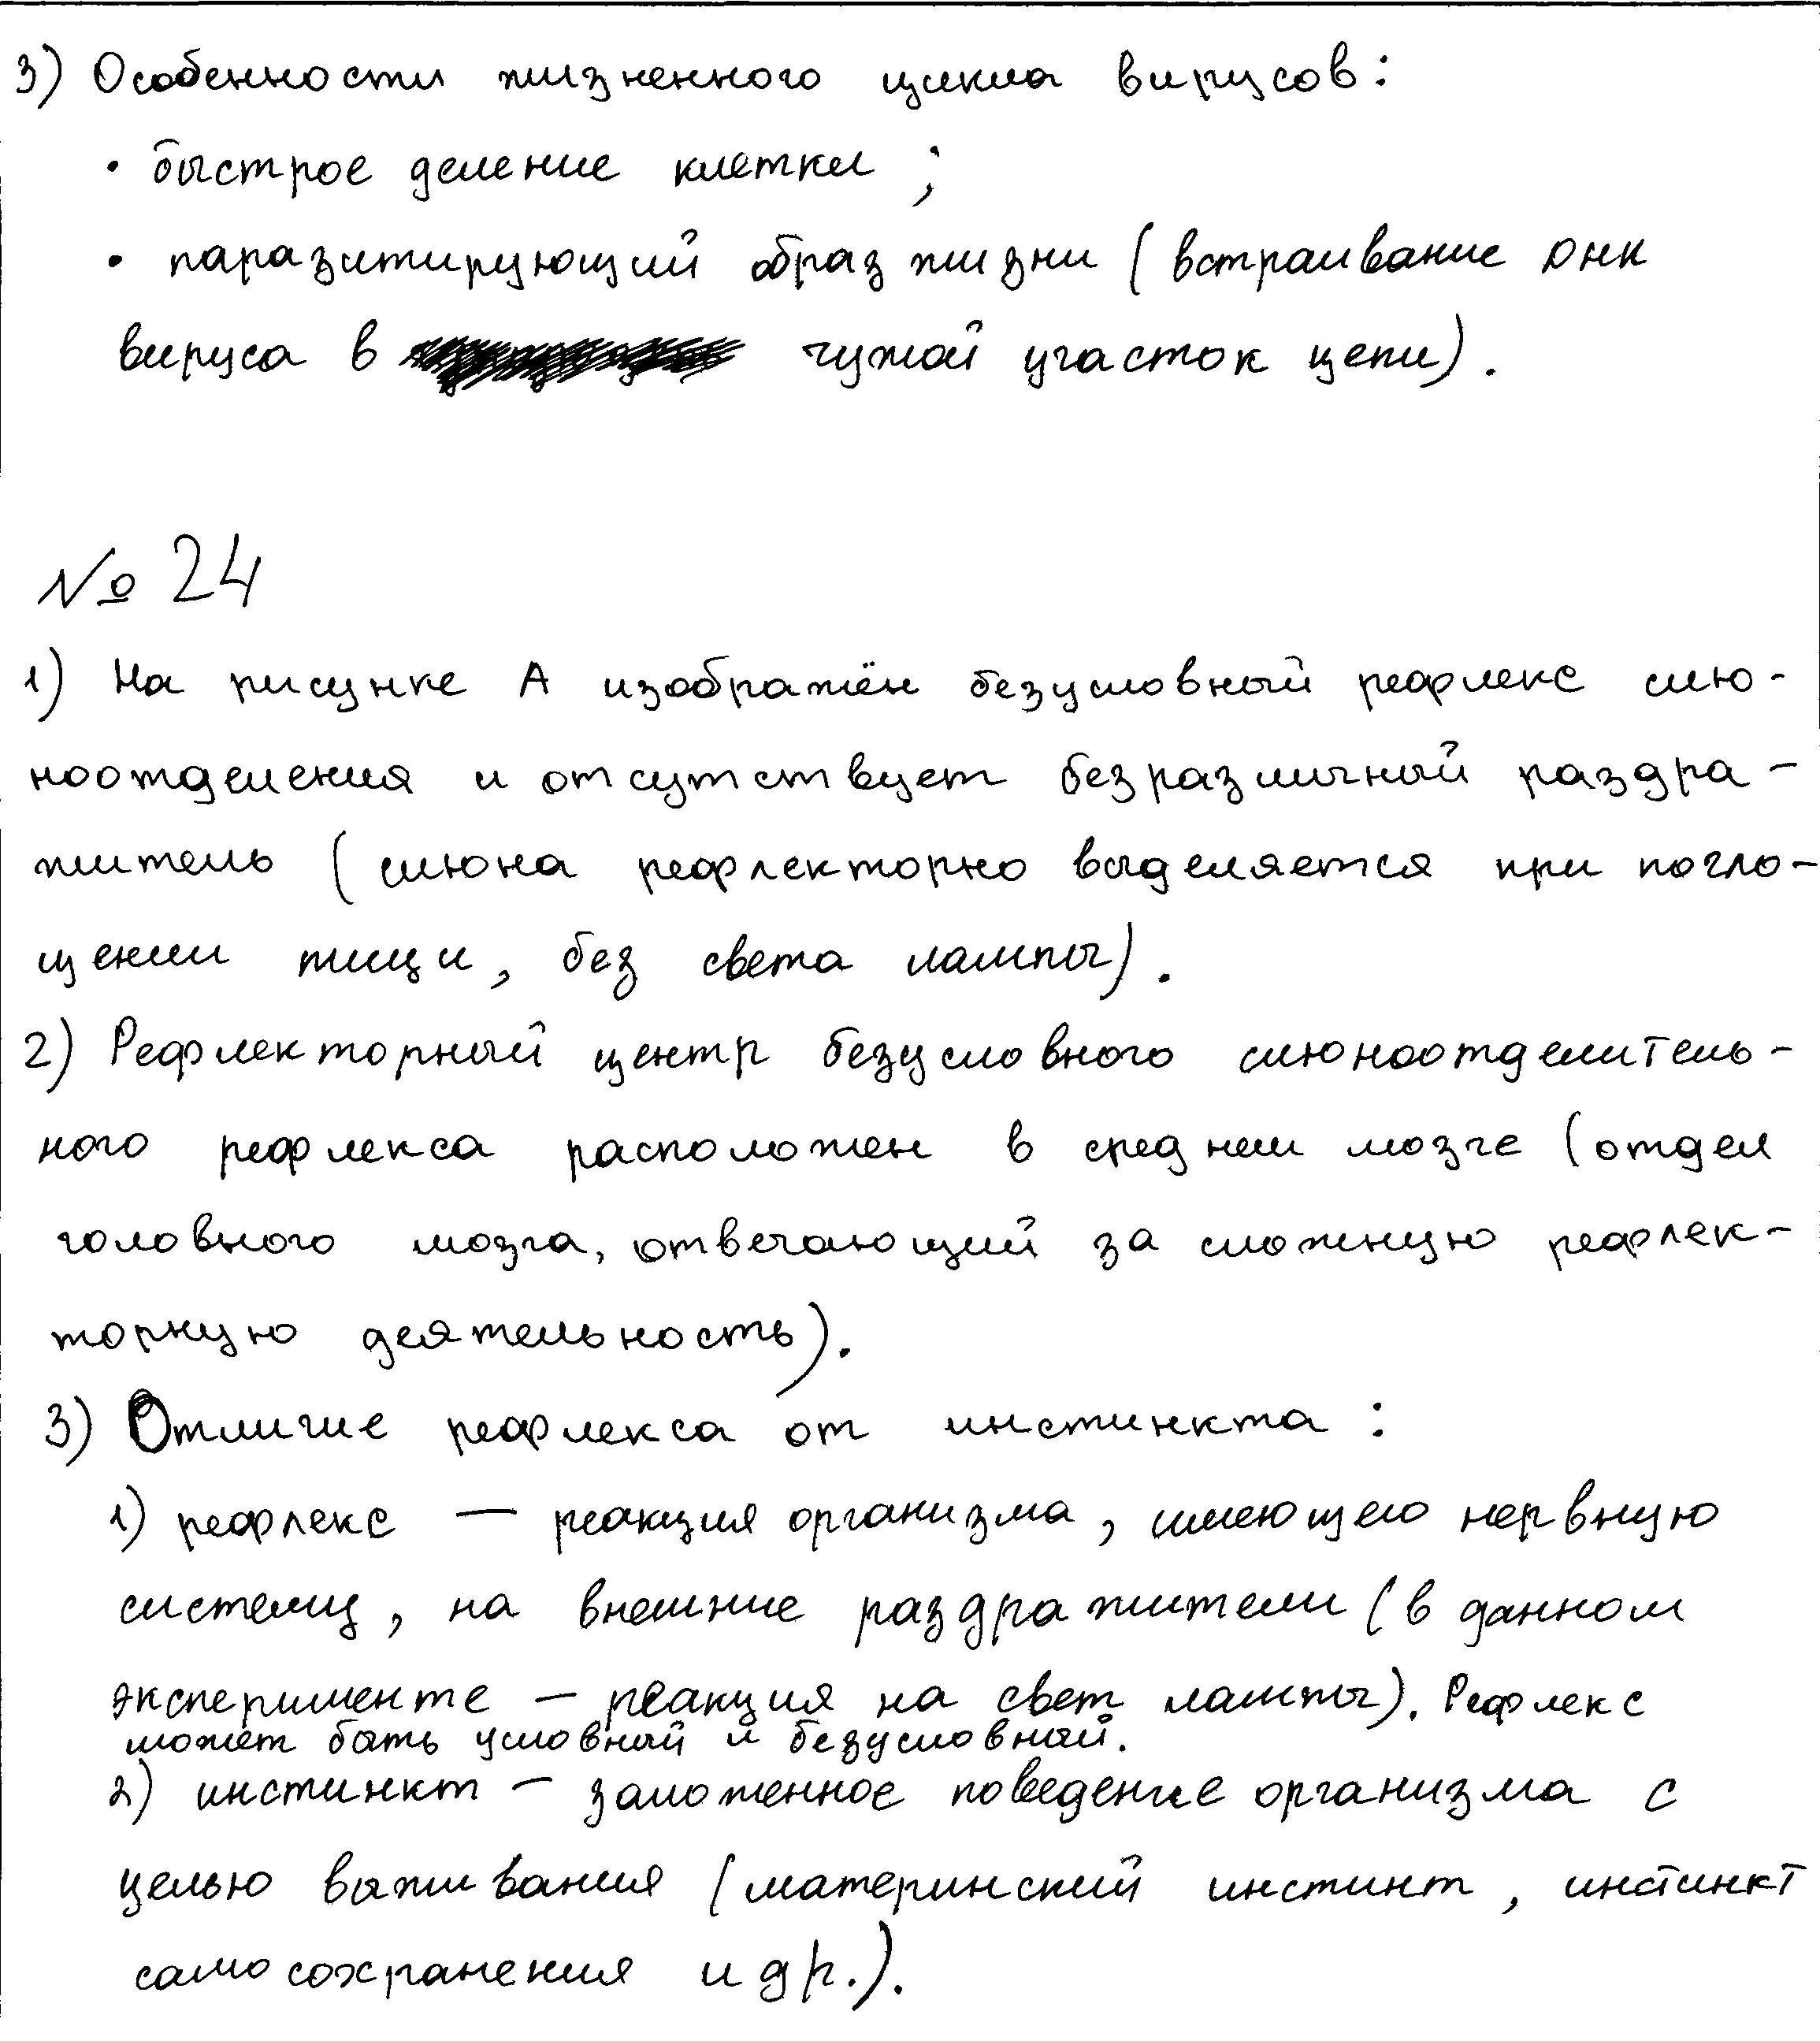 3) Особенности жизненного цикла вирусов:
• быстрое деление клетки;
• паразитирующий образ жизни (встраивание ДНК
вируса в чужой участок цепи).
№ 24
1) На рисунке А изображён безусловный рефлекс слю-
ноотделения и отсутствует безразличный раздра-
житель (слюна рефлекторно выделяется при погло-
щении пищи, без света лампы).
2) Рефлекторный центр безусловного слюноотделитель-
ного рефлекса расположен в среднем мозге (отдел
головного мозга, отвечающий за сложную рефлек-
торную деятельность).
3) Отличие рефлекса от инстинкта:
1) рефлекс — реакция организма, имеющего нервную
систему, на внешние раздражители (в данном
эксперименте — реакция на свет лампы). Рефлекс
может быть условный и безусловный.
2) инстинкт — заложенное поведение организма с
целью выживания (материнский инстинт, инстинкт
самосохранения и др.).